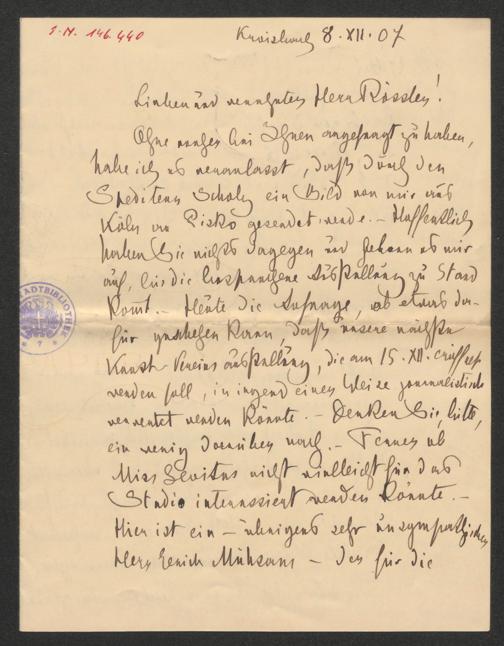 I.N. 146.440
8.XII.07
Lieber und verehrter Herr Rössler!
Ohne vorher bei Ihnen angefragt zu haben,
habe ich es veranlasst, daß durch den
Spediteur Scholz ein Bild von mir aus
Köln an Pisko gesendet werde. – Hoffentlich
haben Sie nichts dagegen und heben es mir
auf, bis die besprochene Ausstellung zu Stand
kommt. – Heute die Anfrage, ob etwas da-
für geschehen kann, daß unsere nächste
Kunst-Vereins ausstellung, die am 15.XII. eröffnet
werden soll, in irgend einer Weise journalistisch
verwertet werden könnte. – Denken Sie, bitte,
ein wenig darüber nach. – Ferner ob
Miss Levetus nicht vielleicht für das
Studio interessiert werden könnte. –
Hier ist ein – übrigens sehr unsympathischer
Herr Erich Mühsam – der für die
STADTBIBLIOTHEK